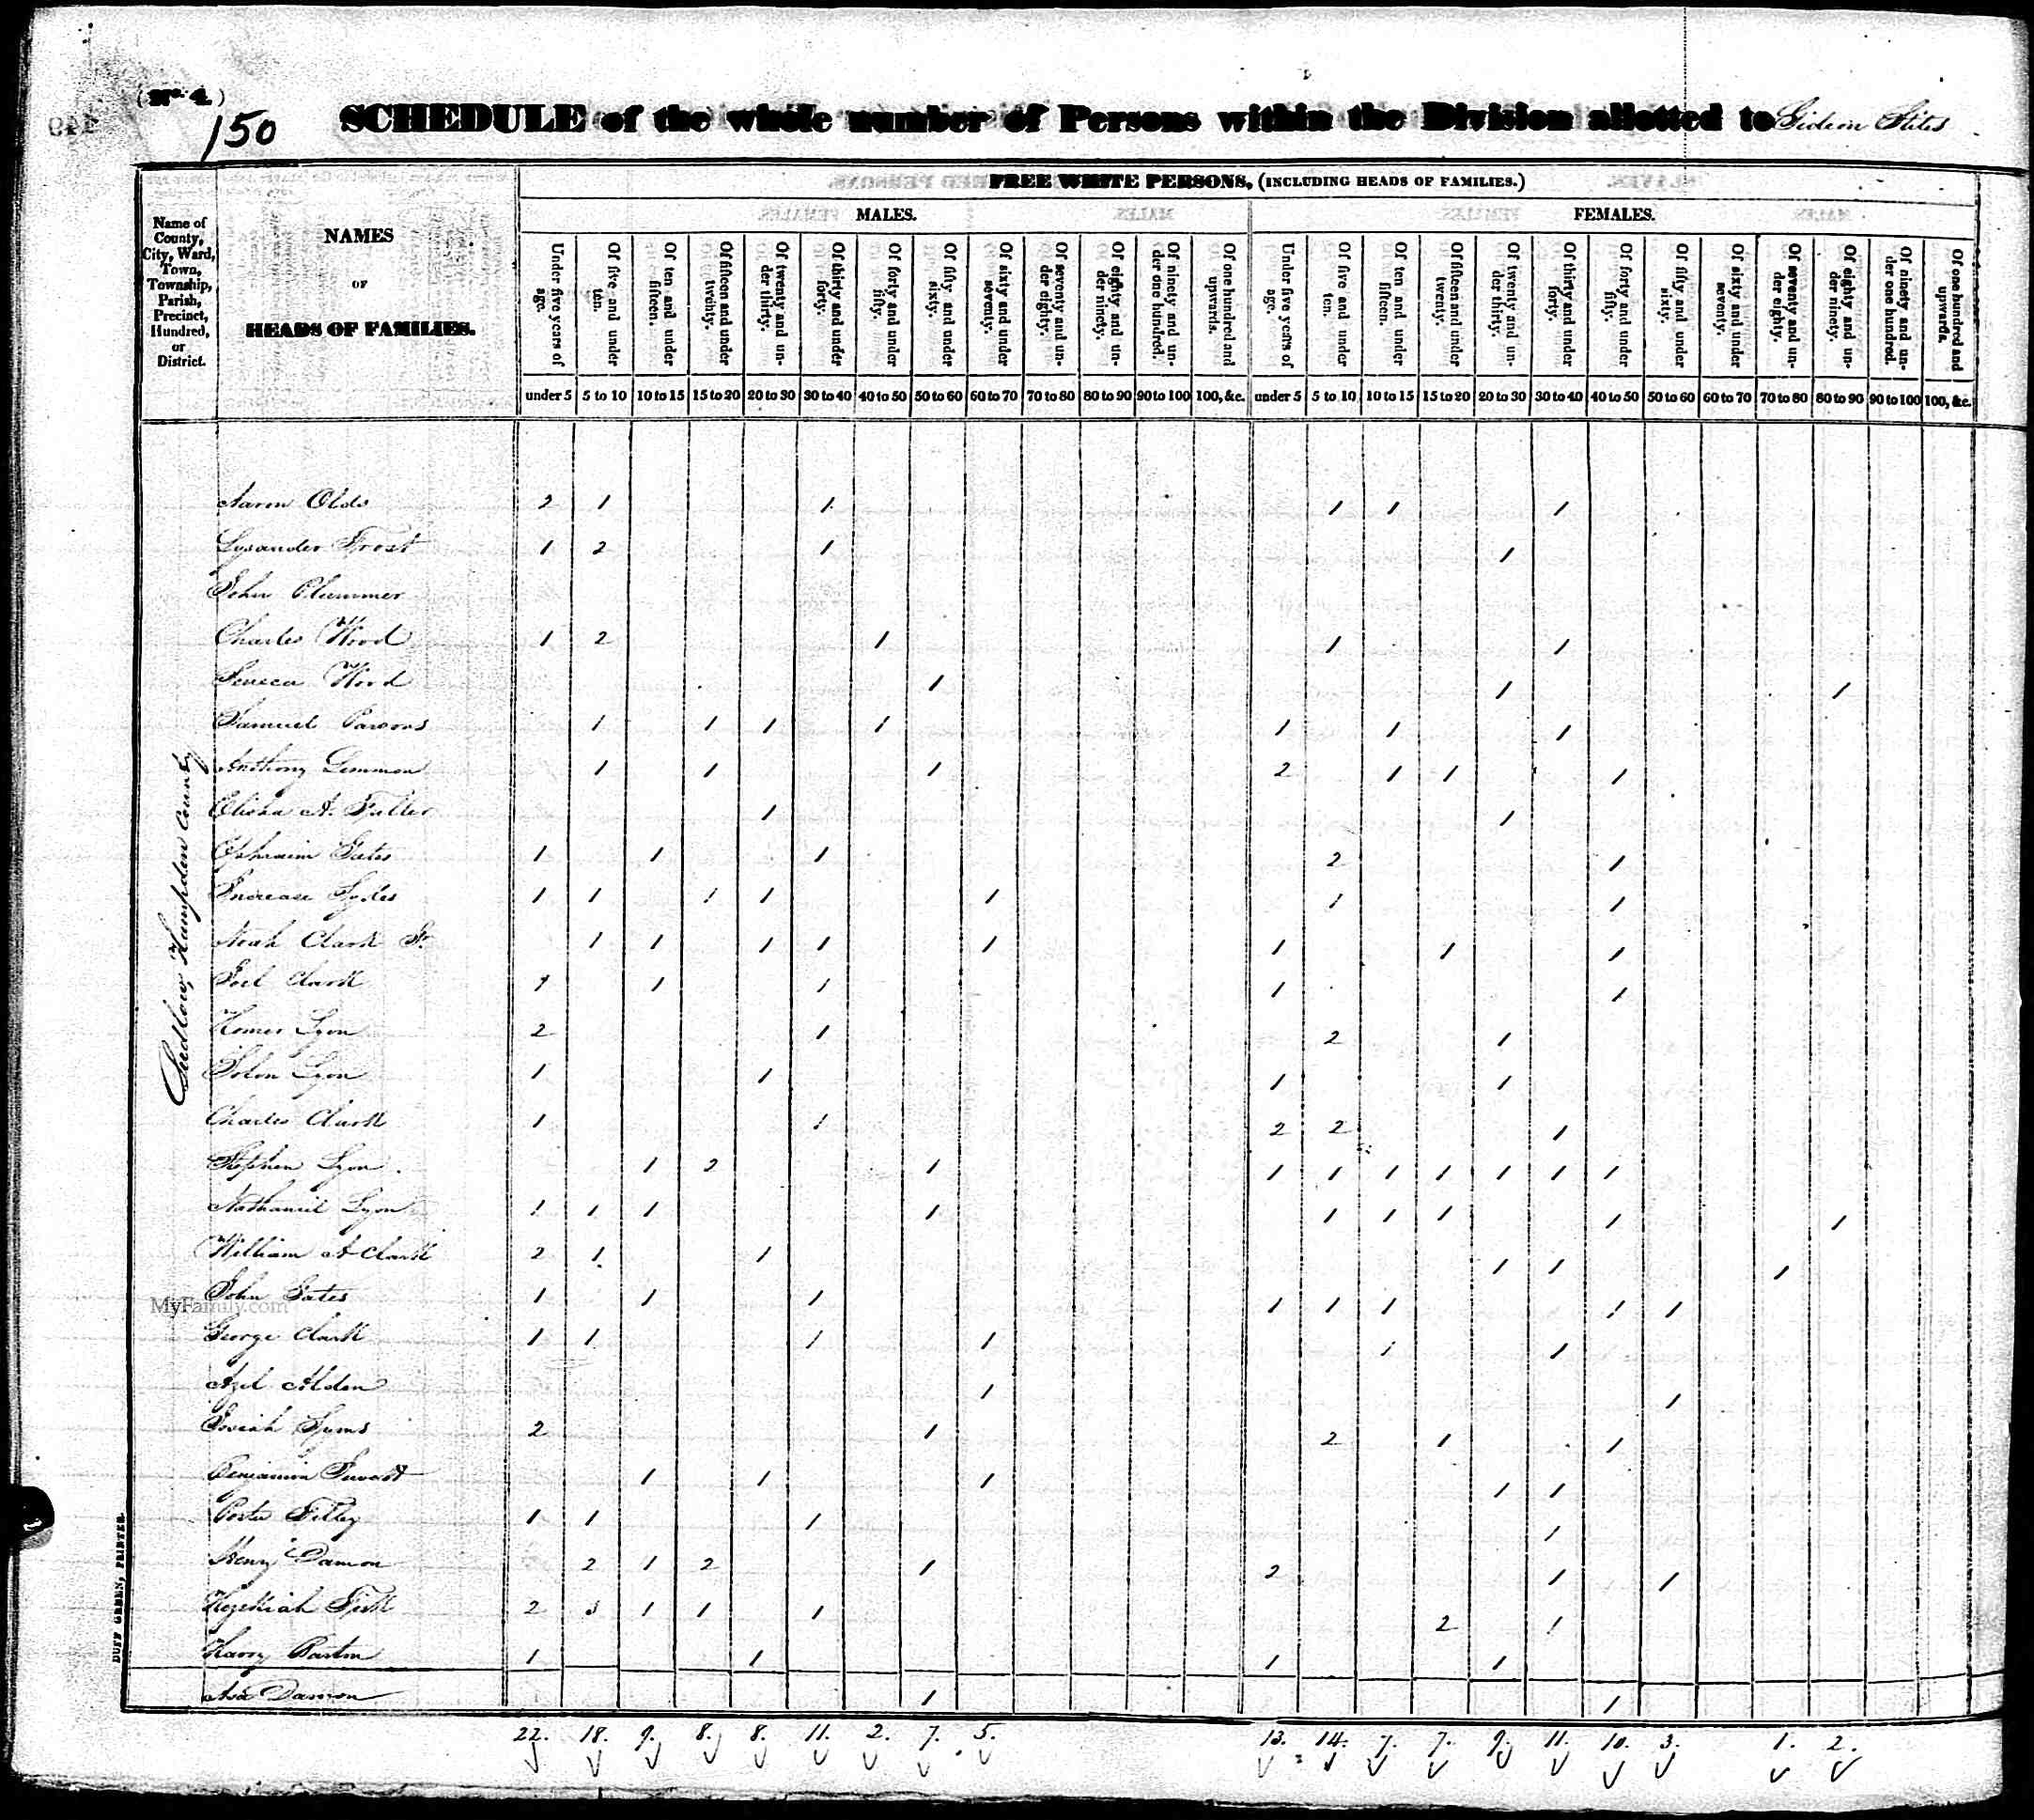 (No. 4.)
150
SCHEDULE of the whole number of Persons within the Division allotted to Gideon Stiles
FREE WHITE PERSONS, (INCLUDING HEADS OF FAMILIES.)
MALES. FEMALES.
Name of County, City, Ward, Town, Township, Parish, Precinct, Hundred, or District.
NAMES
OF
HEADS OF FAMILIES.
Under five years of age. Of five and under ten. Of ten and under fifteen. Of fifteen and under twenty. Of twenty and under thirty. Of thirty and under forty. Of forty and under fifty. Of fifty and under sixty. Of sixty and under seventy. Of seventy and under eighty. Of eighty and under ninety. Of ninety and under one hundred. Of one hundred and upwards. Under five years of age. Of five and under ten. Of ten and under fifteen. Of fifteen and under twenty. Of twenty and under thirty. Of thirty and under forty. Of forty and under fifty. Of fifty and under sixty. Of sixty and under seventy. Of seventy and under eighty. Of eighty and under ninety. Of ninety and under one hundred. Of one hundred and upwards.
under 5 5 to 10 10 to 15 15 to 20 20 to 30 30 to 40 40 to 50 50 to 60 60 to 70 70 to 80 80 to 90 90 to 100 100, &c. under 5 5 to 10 10 to 15 15 to 20 20 to 30 30 to 40 40 to 50 50 to 60 60 to 70 70 to 80 80 to 90 90 to 100 100, &c.
Ludlow, Hampden County
Aaron Olds 2 1 1 1 1 1
Lysander Frost 1 2 1 1
John Plummer
Charles Wood 1 2 1 1 1
Seneca Wood 1 1 1
Samuel Parsons 1 1 1 1 1 1 1
Anthony Lemmon 1 1 1 2 1 1 1
Elisha A. Fuller 1 1
Ephraim Gates 1 1 1 2 1
Increase Sykes 1 1 1 1 1 1 1
Noah Clark Jr. 1 1 1 1 1 1 1 1
Joel Clark 1 1 1 1 1
Homer Lyon 2 1 2 1
Solon Lyon 1 1 1 1
Charles Clark 1 1 2 2 1
Stephen Lyon 1 2 1 1 1 1 1 1 1 1
Nathaniel Lyon 1 1 1 1 1 1 1 1 1
William A Clark 2 1 1 1 1 1
John Gates 1 1 1 1 1 1 1 1
George Clark 1 1 1 1 1 1
Azel Alden 1 1
Josiah Syms 2 1 2 1 1
Benjamin 1 1 1 1 1
Porter Filley 1 1 1 1
Henry Damon 2 1 2 1 2 1 1
Hezekiah Fisk 2 3 1 1 1 2 1
Harry Barton 1 1 1 1
Asa Damon 1 1
22. 18. 9. 8. 8. 11. 2. 7. 5. 13. 14. 7. 7. 9. 11. 10. 3. 1. 2.
DUFF GREEN, PRINTER.
MyFamily.com